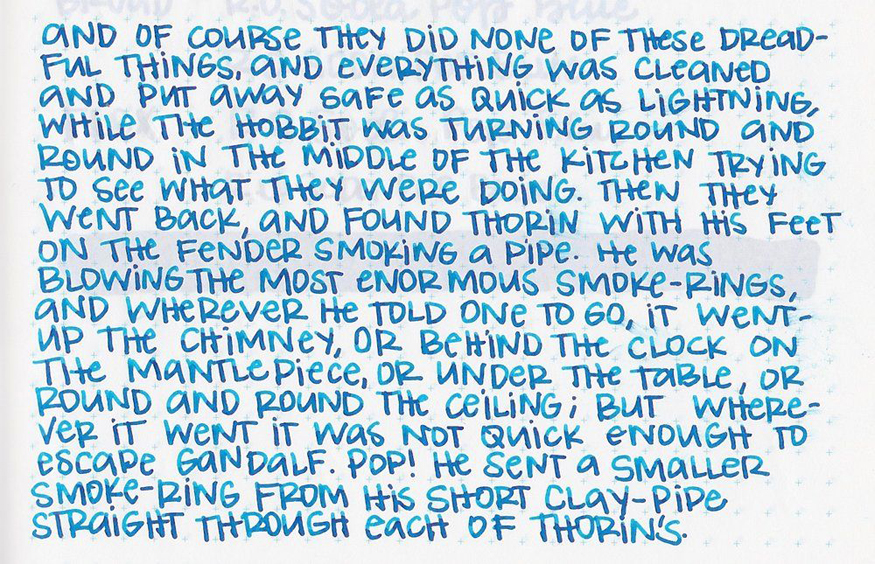 AND OF COURSE THEY DID NONE OF THESE DREAD-
FUL THINGS, AND EVERYTHING WAS CLEANED
AND PUT AWAY SAFE AS QUICK AS LIGHTNING,
WHILE THE HOBBIT WAS TURNING ROUND AND
ROUND IN THE MIDDLE OF THE KITCHEN TRYING
TO SEE WHAT THEY WERE DOING. THEN THEY
WENT BACK, AND FOUND THORIN WITH HIS FEET
ON THE FENDER SMOKING A PIPE. HE WAS
BLOWING THE MOST ENORMOUS SMOKE-RINGS,
AND WHEREVER HE TOLD ONE TO GO, IT WENT-
UP THE CHIMNEY, OR BEHIND THE CLOCK ON
THE MANTLEPIECE, OR UNDER THE TABLE, OR
ROUND AND ROUND THE CEILING; BUT WHERE-
VER IT WENT IT WAS NOT QUICK ENOUGH TO
ESCAPE GANDALF. POP! HE SENT A SMALLER
SMOKE-RING FROM HIS SHORT CLAY-PIPE
STRAIGHT THROUGH EACH OF THORIN'S.